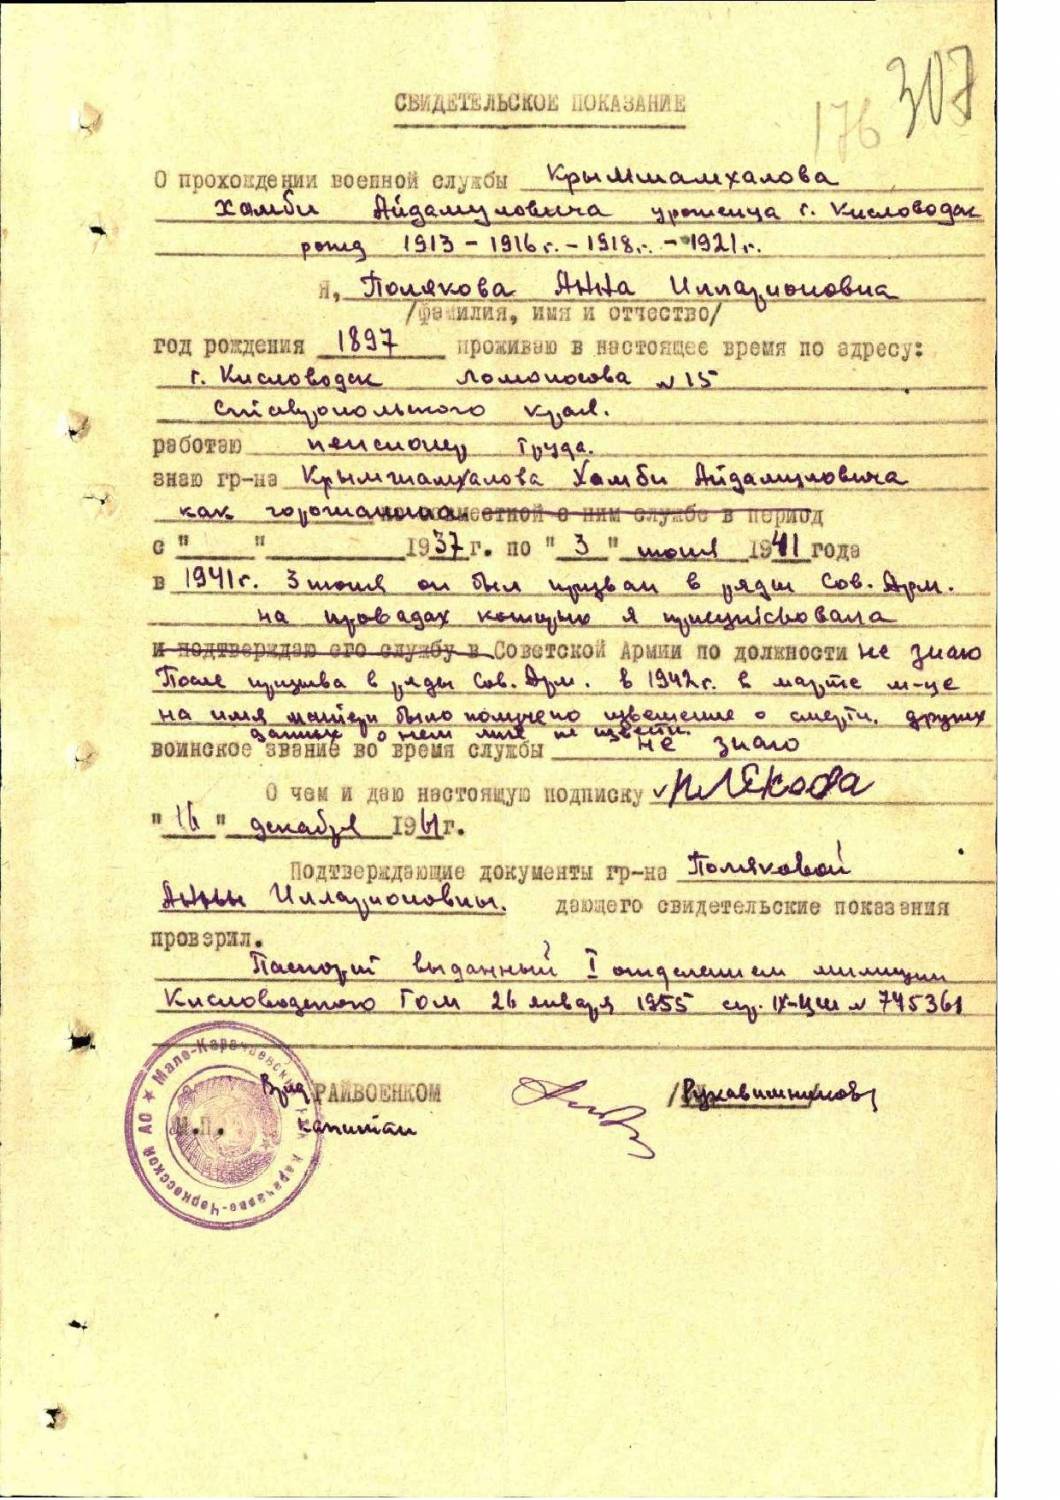 307
176
СВИДЕТЕЛЬСКОЕ ПОКАЗАНИЕ
О прохождении военной службы Крымшамхалова
Хамби Айдамуловича уроженца г. Кисловодск
рожд 1913 - 1916 г. - 1918 г. - 1921 г.
Я, Полякова Анна Илларионовна
/фамилия, имя и отчество/
год рождения 1897 проживаю в настоящее время по адресу:
г. Кисловодск Ломоносова № 15
Ставропольского края.
работаю пенсионер труда.
знаю гр-на Крымшамхалова Хамби Айдамуловича
как горожанина. местной с ним службе в период
с " " 1937 г. по " 3 " июня 1941 года
в 1941 г. 3 июня он был призван в ряды Сов. Арм.
на проводах которого я присутствовала
и подтверждаю его службу в Советской Армии по должности не знаю
После призыва в ряды Сов. Арм. в 1942 г. в марте м-це
на имя матери было получено извещение о смерти. других
данных о нем мне не известн.
воинское звание во время службы не знаю
О чем и даю настоящую подписку
" 16 " декабря 1961 г.
Подтверждающие документы гр-на Поляковой
Анны Илларионовны. дающего свидетельские показания
проверил.
Паспорт выданный I отделением милиции
Кисловодского ГОМ 26 января 1955 сер. IX-ЦШ № 745361
Врид РАЙВОЕНКОМ /Рукавишников/
М.П. капитан
★ Мало-Карачаевский Карачаево-Черкесской АО